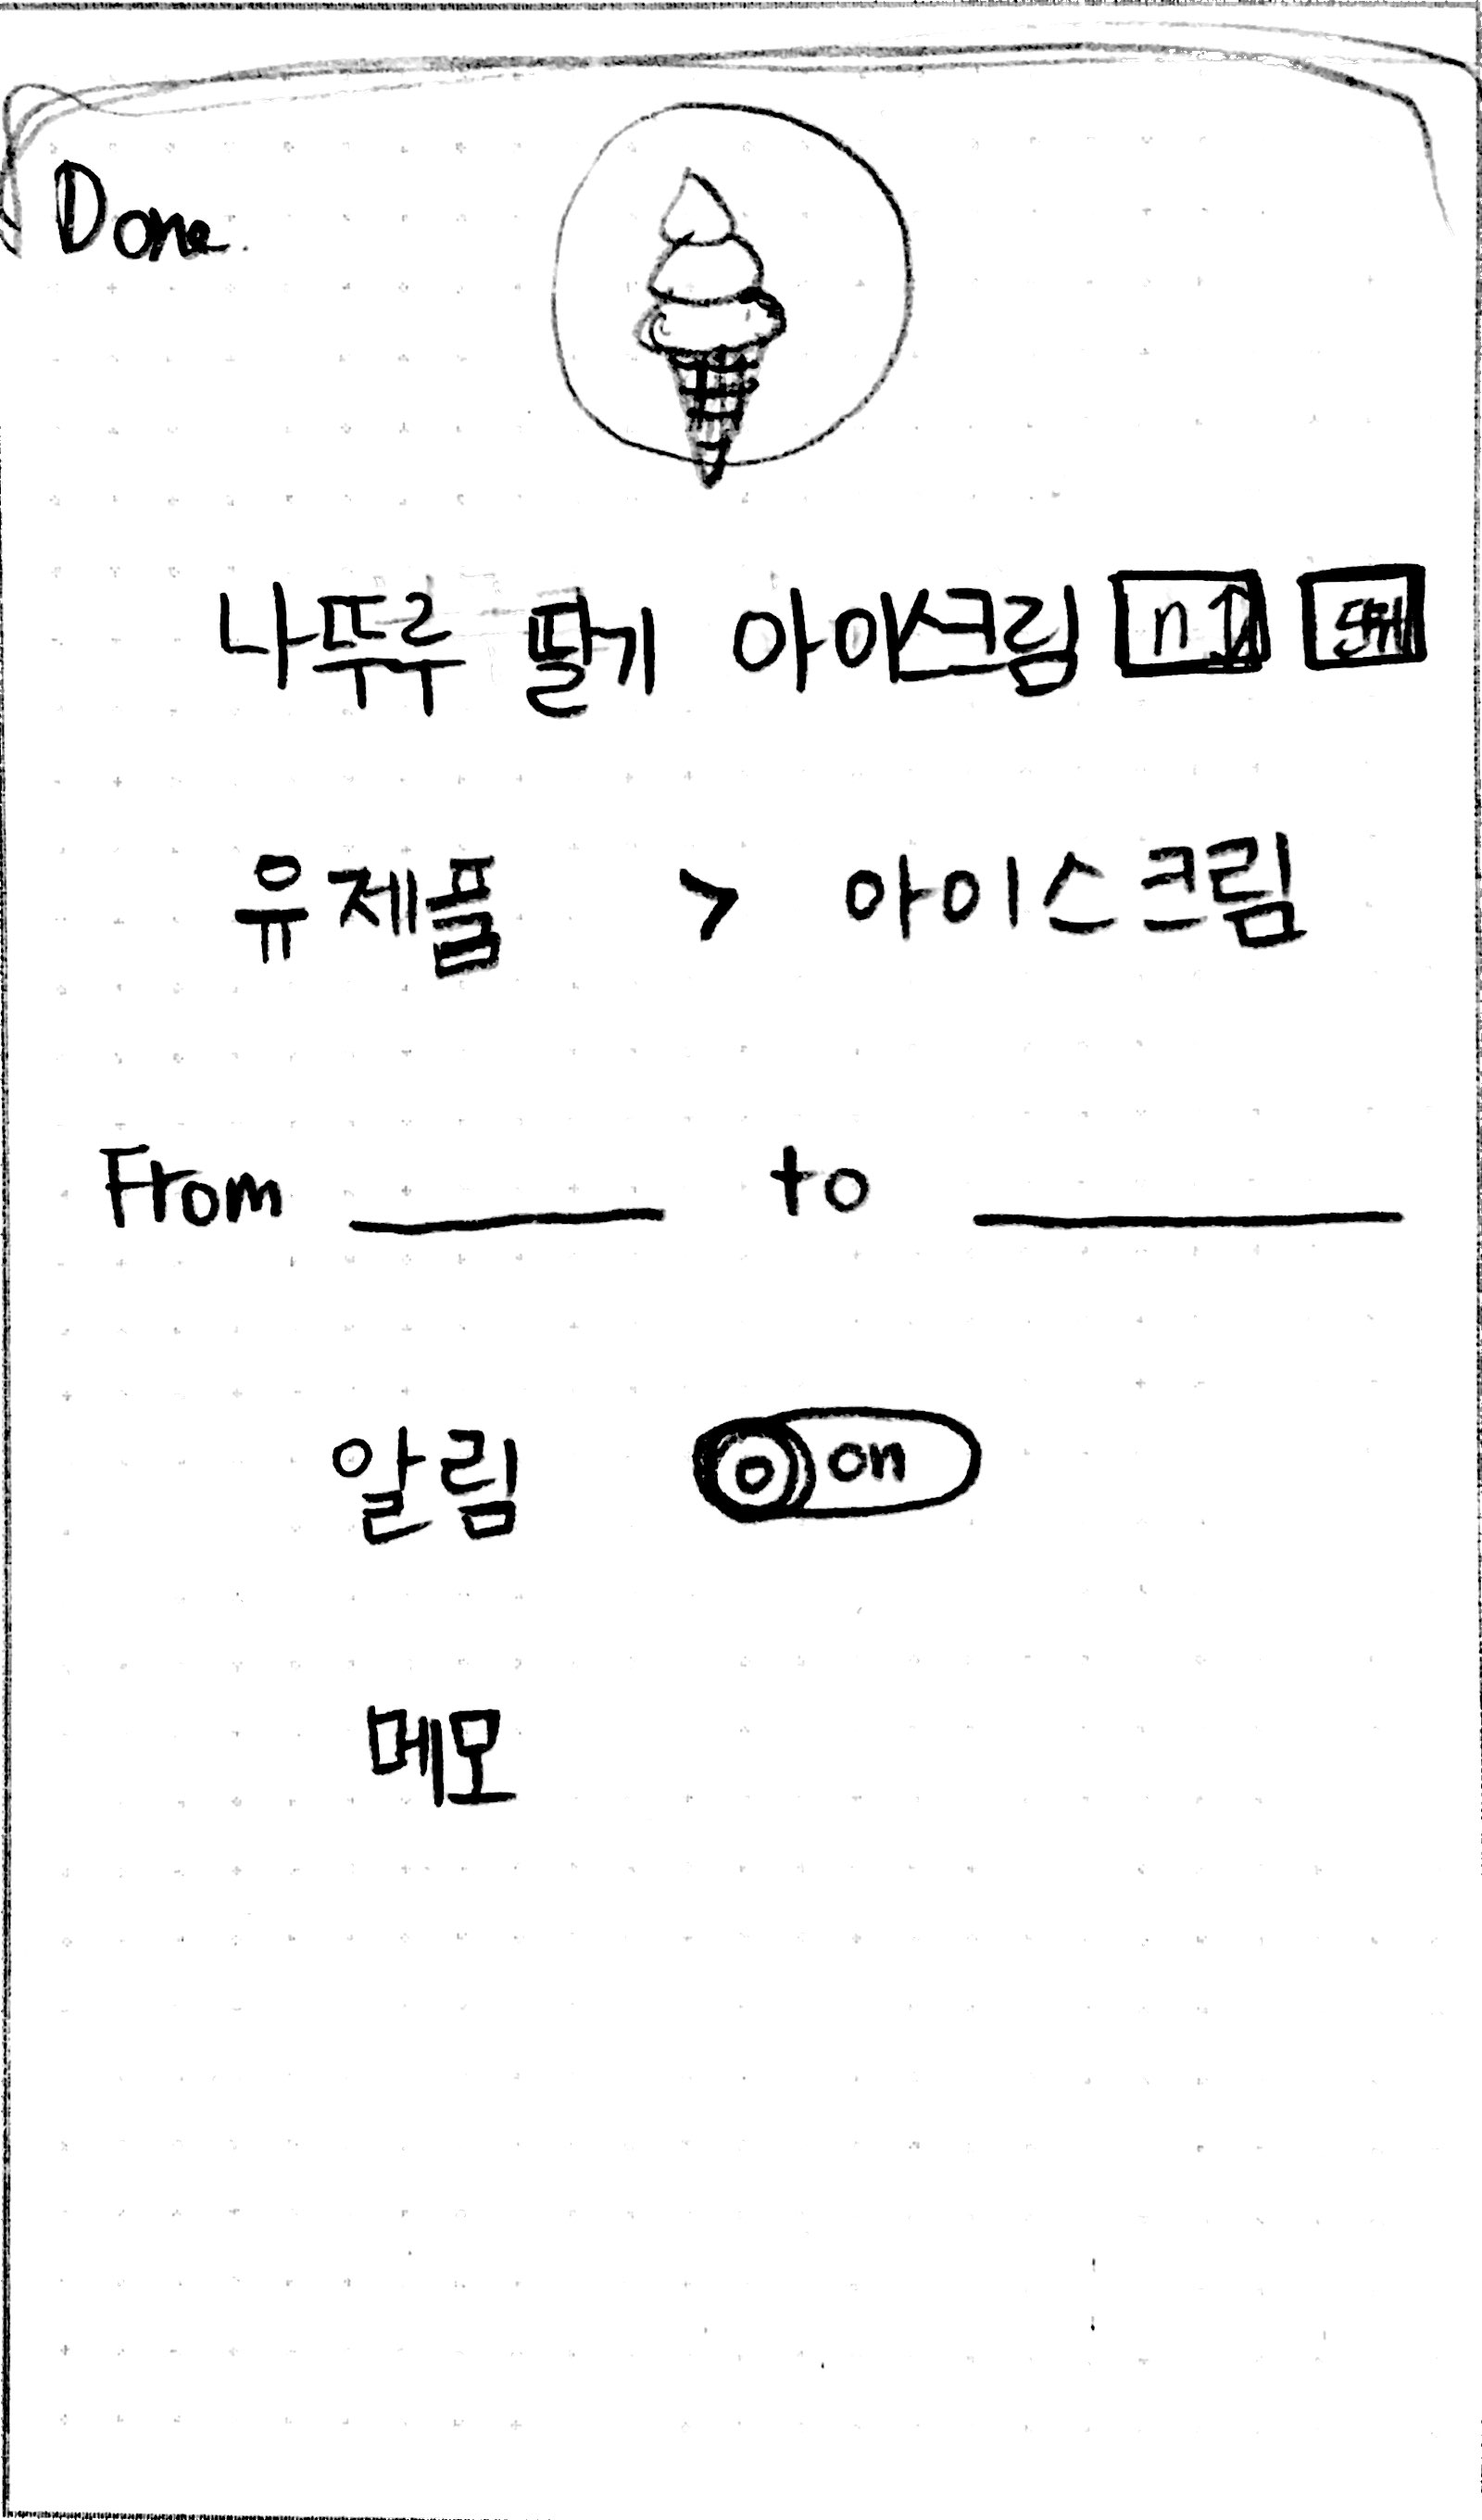 Done.
나뚜루 딸기 아이스크림
유제품 > 아이스크림
From to
알림 on
메모